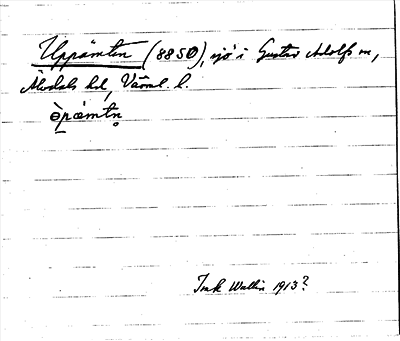 Uppämten (88 SO), sjö i Gustav Adolfs sn,
Älvdals hd, Värml. l.
Ink Wallin 1913?